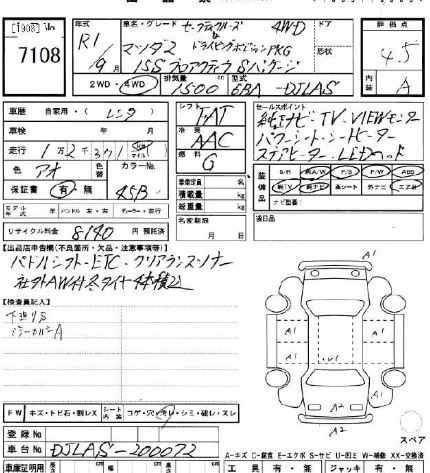 7108
年式
R1/9月
車名・グレード
セーフティクルーズ&
ドライビングポジションPKG
4WD
ドア
形状
マツダ2
15S プロアクティブ Sパッケージ
2WD・4WD
排気量
1500
型式
6BA-DJLAS
評価点
4.5
内装
A
車歴
自家用・(レンタ)
車検
年 月
走行
1万2千371
km
マイル
色
アオ
色替
カラーNo.
45B
保証書
有・無
モデル年式
年
ハンドル 左・右
ディーラー・並行
リサイクル料金
8,140
円 預託済
シフト
FAT
冷房
AAC
燃料
G
乗車定員
名
積載量
kg
総重量
kg
名変期限
月 日
セールスポイント
純正ナビ・TV・VIEWモニター
パワーシート・シートヒーター
ステアヒーター・LEDヘッド
装備品
S/R
純A/W
革シート
P/S
P/W
ABS
純TV
純ナビ
外ナビ
エアB
ナビ型番
後日品
【出品店申告欄(不良箇所・欠品・注意事項等)】
パドルシフト・ETC・クリアランスソナー
社外AW付冬タイヤ1体積込
【検査員記入】
下廻りS
ミラーカバーA
FW
キズ・トビ石・割レX
シート内装
コゲ・穴・汚レ・シミ・破レ・スレ
登録No.
車台No.
DJLAS-200072
車庫証明用
cm
cm
A1
A1
A1
A1
A1
A2
A2
スペア
A-キズ C-腐食 E-エクボ S-サビ U-凹ミ W-補修 XX-交換済
工具
有・無
ジャッキ
有・無